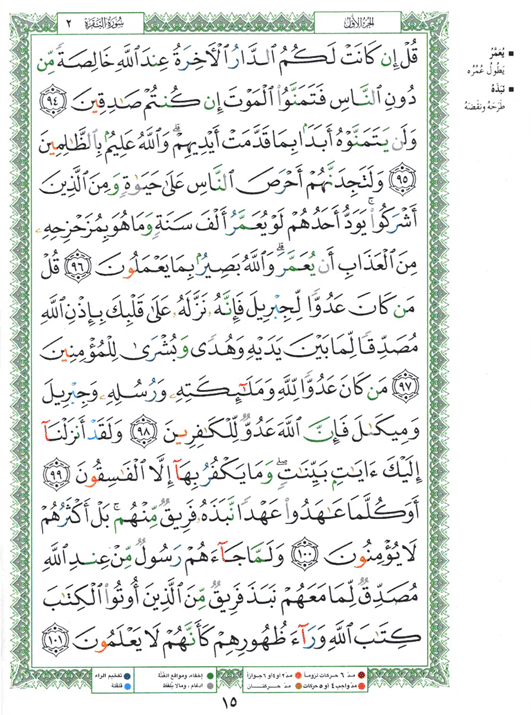 الجزء الأول
سورة البقرة ٢
قُلْ إِن كَانَتْ لَكُمُ ٱلدَّارُ ٱلْأَخِرَةُ عِندَ ٱللَّهِ خَالِصَةً مِّن
دُونِ ٱلنَّاسِ فَتَمَنَّوُا۟ ٱلْمَوْتَ إِن كُنتُمْ صَٰدِقِينَ ٩٤
وَلَن يَتَمَنَّوْهُ أَبَدًۢا بِمَا قَدَّمَتْ أَيْدِيهِمْ ۗ وَٱللَّهُ عَلِيمٌۢ بِٱلظَّٰلِمِينَ
٩٥ وَلَتَجِدَنَّهُمْ أَحْرَصَ ٱلنَّاسِ عَلَىٰ حَيَوٰةٍ وَمِنَ ٱلَّذِينَ
أَشْرَكُوا۟ ۚ يَوَدُّ أَحَدُهُمْ لَوْ يُعَمَّرُ أَلْفَ سَنَةٍ وَمَا هُوَ بِمُزَحْزِحِهِۦ
مِنَ ٱلْعَذَابِ أَن يُعَمَّرَ ۗ وَٱللَّهُ بَصِيرٌۢ بِمَا يَعْمَلُونَ ٩٦ قُلْ
مَن كَانَ عَدُوًّا لِّجِبْرِيلَ فَإِنَّهُۥ نَزَّلَهُۥ عَلَىٰ قَلْبِكَ بِإِذْنِ ٱللَّهِ
مُصَدِّقًا لِّمَا بَيْنَ يَدَيْهِ وَهُدًى وَبُشْرَىٰ لِلْمُؤْمِنِينَ
٩٧ مَن كَانَ عَدُوًّا لِّلَّهِ وَمَلَٰٓئِكَتِهِۦ وَرُسُلِهِۦ وَجِبْرِيلَ
وَمِيكَىٰلَ فَإِنَّ ٱللَّهَ عَدُوٌّ لِّلْكَٰفِرِينَ ٩٨ وَلَقَدْ أَنزَلْنَآ
إِلَيْكَ ءَايَٰتٍۭ بَيِّنَٰتٍ ۖ وَمَا يَكْفُرُ بِهَآ إِلَّا ٱلْفَٰسِقُونَ ٩٩
أَوَكُلَّمَا عَٰهَدُوا۟ عَهْدًا نَّبَذَهُۥ فَرِيقٌ مِّنْهُم ۚ بَلْ أَكْثَرُهُمْ
لَا يُؤْمِنُونَ ١٠٠ وَلَمَّا جَآءَهُمْ رَسُولٌ مِّنْ عِندِ ٱللَّهِ
مُصَدِّقٌ لِّمَا مَعَهُمْ نَبَذَ فَرِيقٌ مِّنَ ٱلَّذِينَ أُوتُوا۟ ٱلْكِتَٰبَ
كِتَٰبَ ٱللَّهِ وَرَآءَ ظُهُورِهِمْ كَأَنَّهُمْ لَا يَعْلَمُونَ ١٠١
▪ يُعَمَّرُ
يَطُولُ عُمُرُه
▪ نَبَذَهُ
طَرَحَهُ ونَقَضَهُ
مدّ ٦ حركات لزوماً
مدّ ٢ أو ٤ أو ٦ جوازاً
إخفاء، ومواقع الغُنَّة
تفخيم الراء
مدّ واجب ٤ أو ٥ حركات
مدّ حركتان
ادغام، وما لا يُلفَظ
قلقلة
١٥